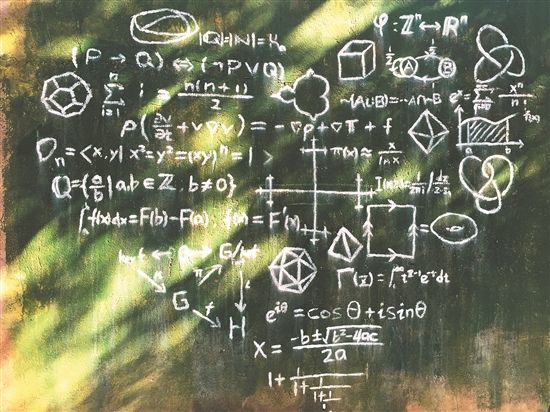 |Q|=|N|=ℵ₀
φ:ℤⁿ↔ℝⁿ
(P→Q)⇔(¬P∨Q)
n
∑ i = n(n+1)/2
i=1
A B
1/2
eˣ=∑ xⁿ/n!
f(x)
a b
ρ(∂v/∂t+v∇v)=-∇p+∇T+f
Dₙ=<x,y|x²=y²=(xy)ⁿ=1>
π(x)≈x/ln x
Q={a/b|a,b∈ℤ, b≠0}
∫f(x)dx=F(b)-F(a), f(x)=F'(x)
=
G
H
Γ(z)=∫₀^∞ t^(z-1)e^(-t)dt
e^(iθ)=cosθ+isinθ
x=(-b±√(b²-4ac))/2a
1+1/(1+1/(1+1/(1+1/1